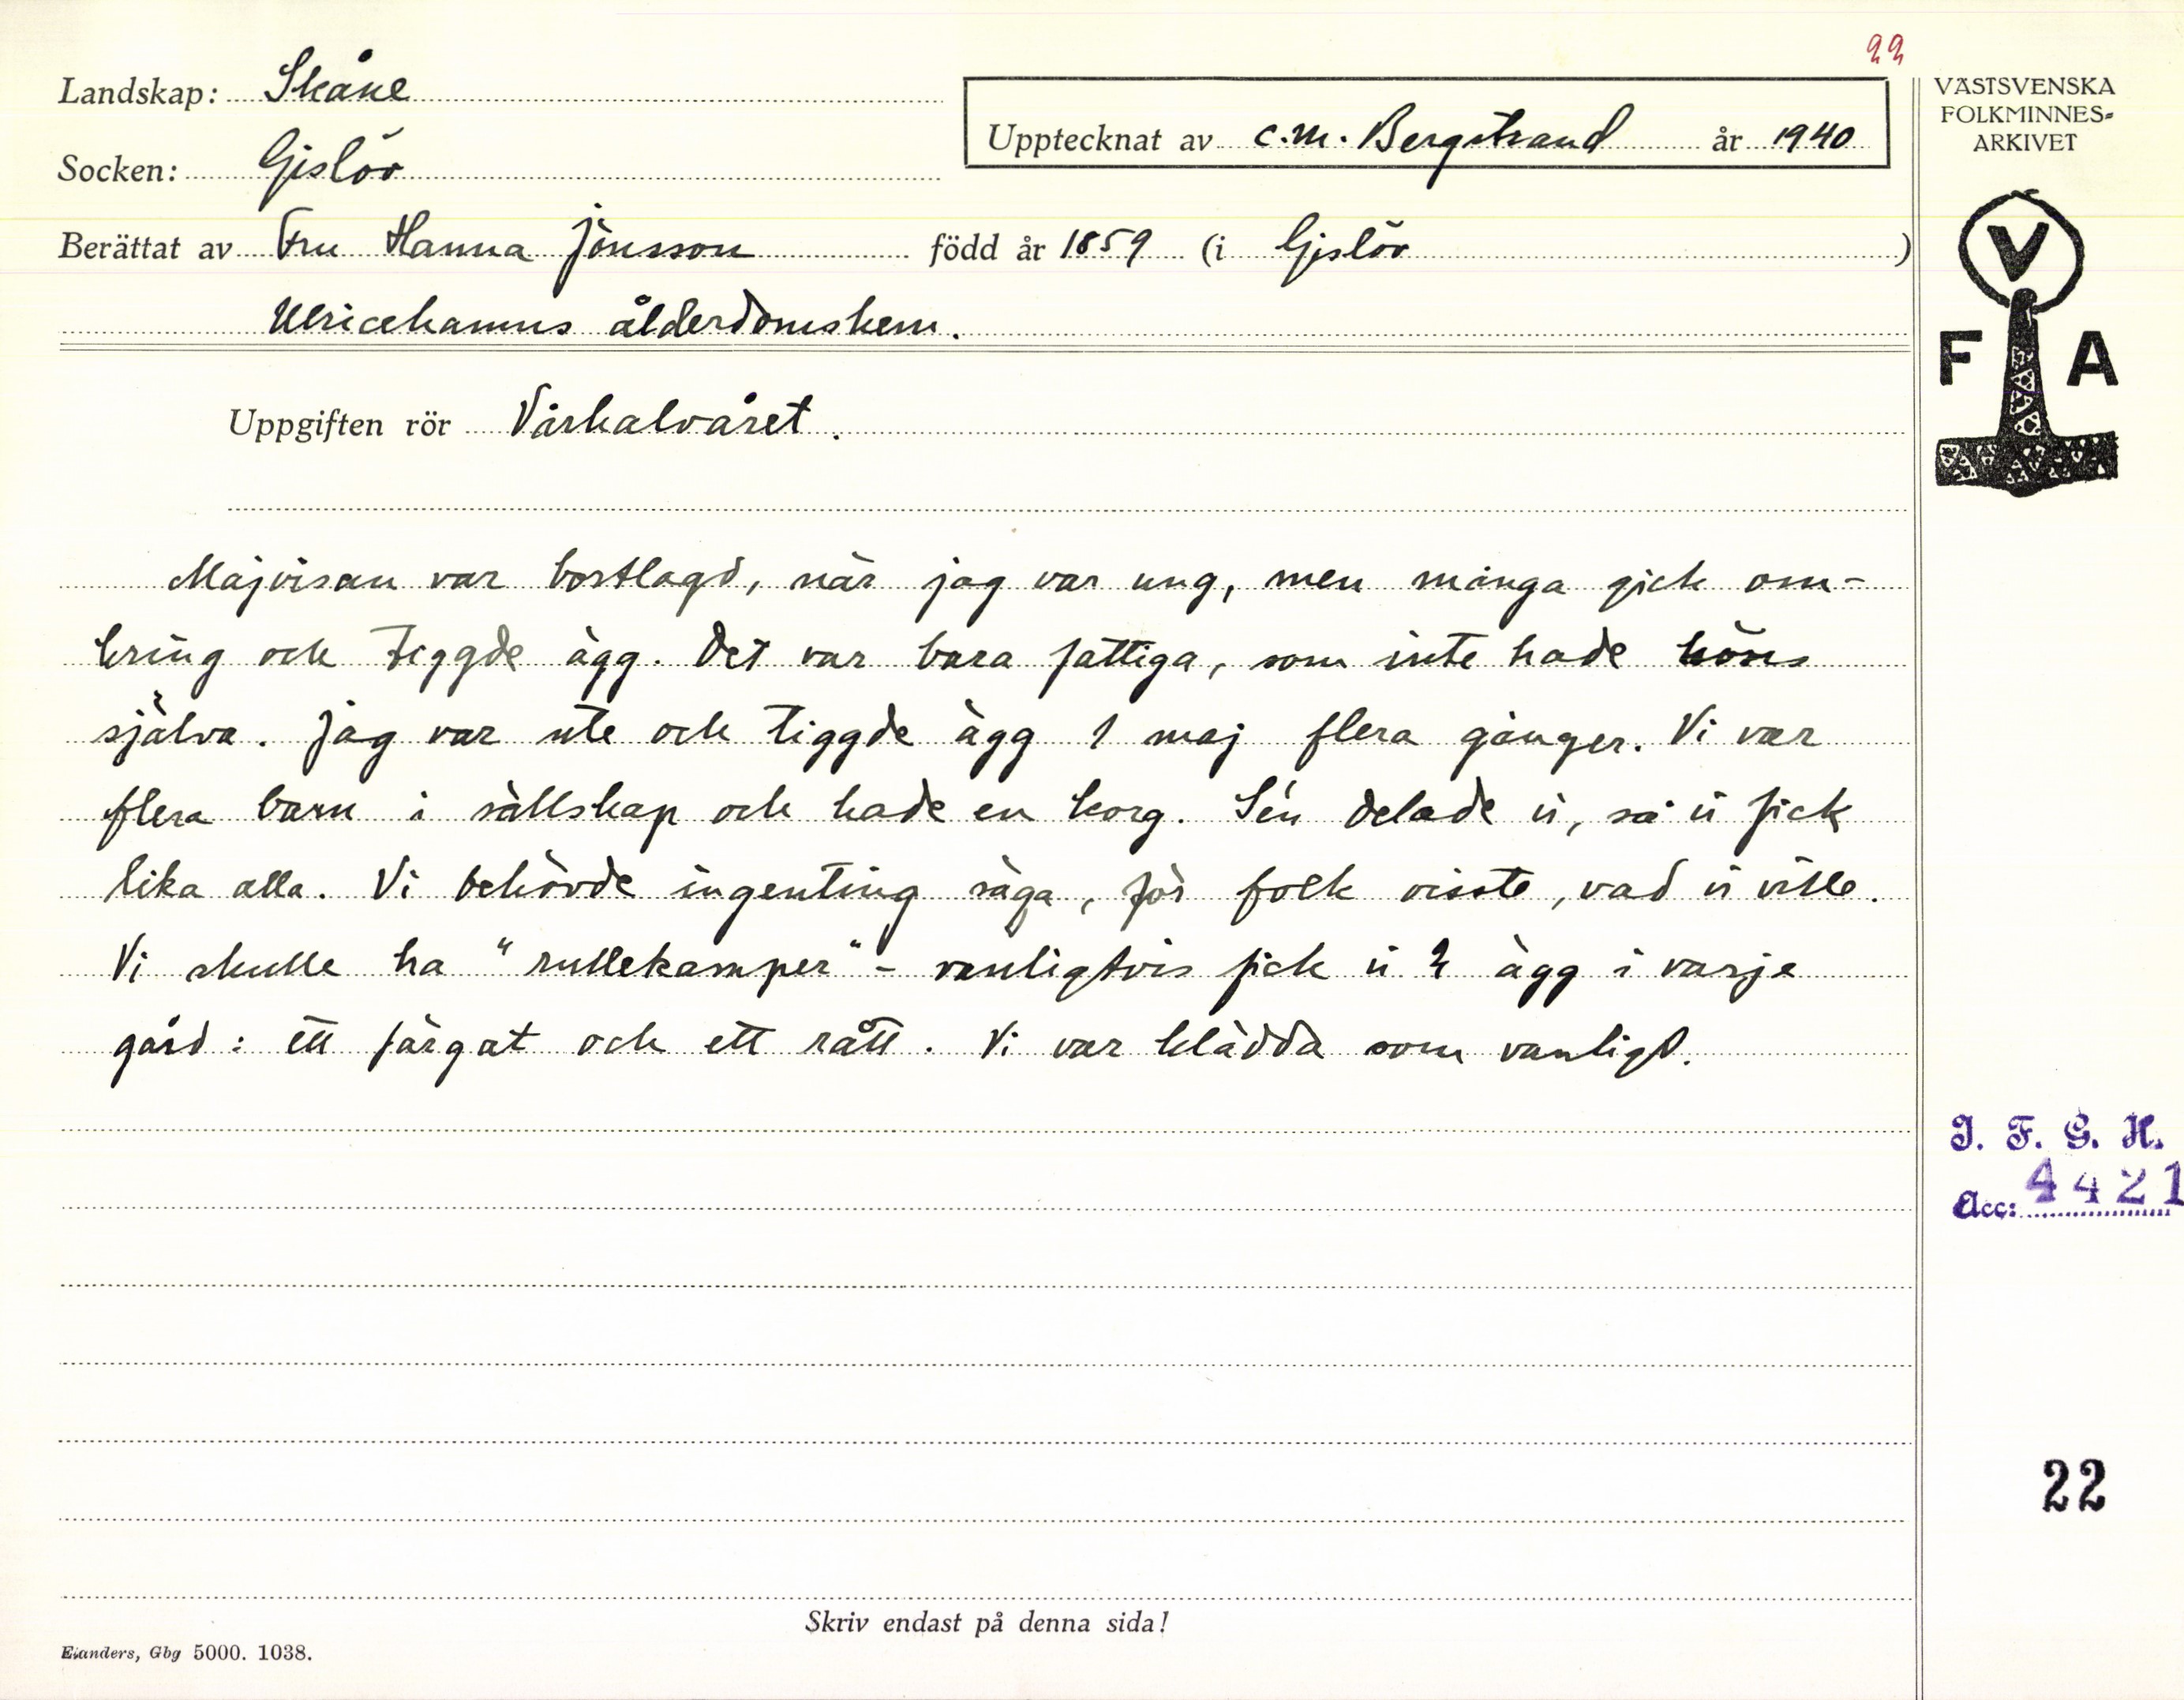 22
Landskap: Skåne
Upptecknat av C.M. Bergstrand år 1940
Socken: Gislöv
Berättat av Fru Hanna Jönsson född år 1859 (i Gislöv)
Ulricehamns ålderdomshem.
Uppgiften rör Vårhalvåret.
Majvisan var bortlagd, när jag var ung, men många gick om-
kring och tiggde ägg. Det var bara fattiga, som inte hade höns
själva. Jag var ute och tiggde ägg 1 maj flera gånger. Vi var
flera barn i sällskap och hade en korg. Sén delade vi, så vi fick
lika alla. Vi behövde ingenting säga, för folk visste, vad vi ville.
Vi skulle ha "rullekamper" - vanligtvis fick vi 2 ägg i varje
gård: ett färgat och ett rått. Vi var klädda som vanligt.
Skriv endast på denna sida!
Elanders, Gbg 5000. 1038.
VÄSTSVENSKA
FOLKMINNES-
ARKIVET
V
F A
I. F. G. H.
Acc: 4421
22